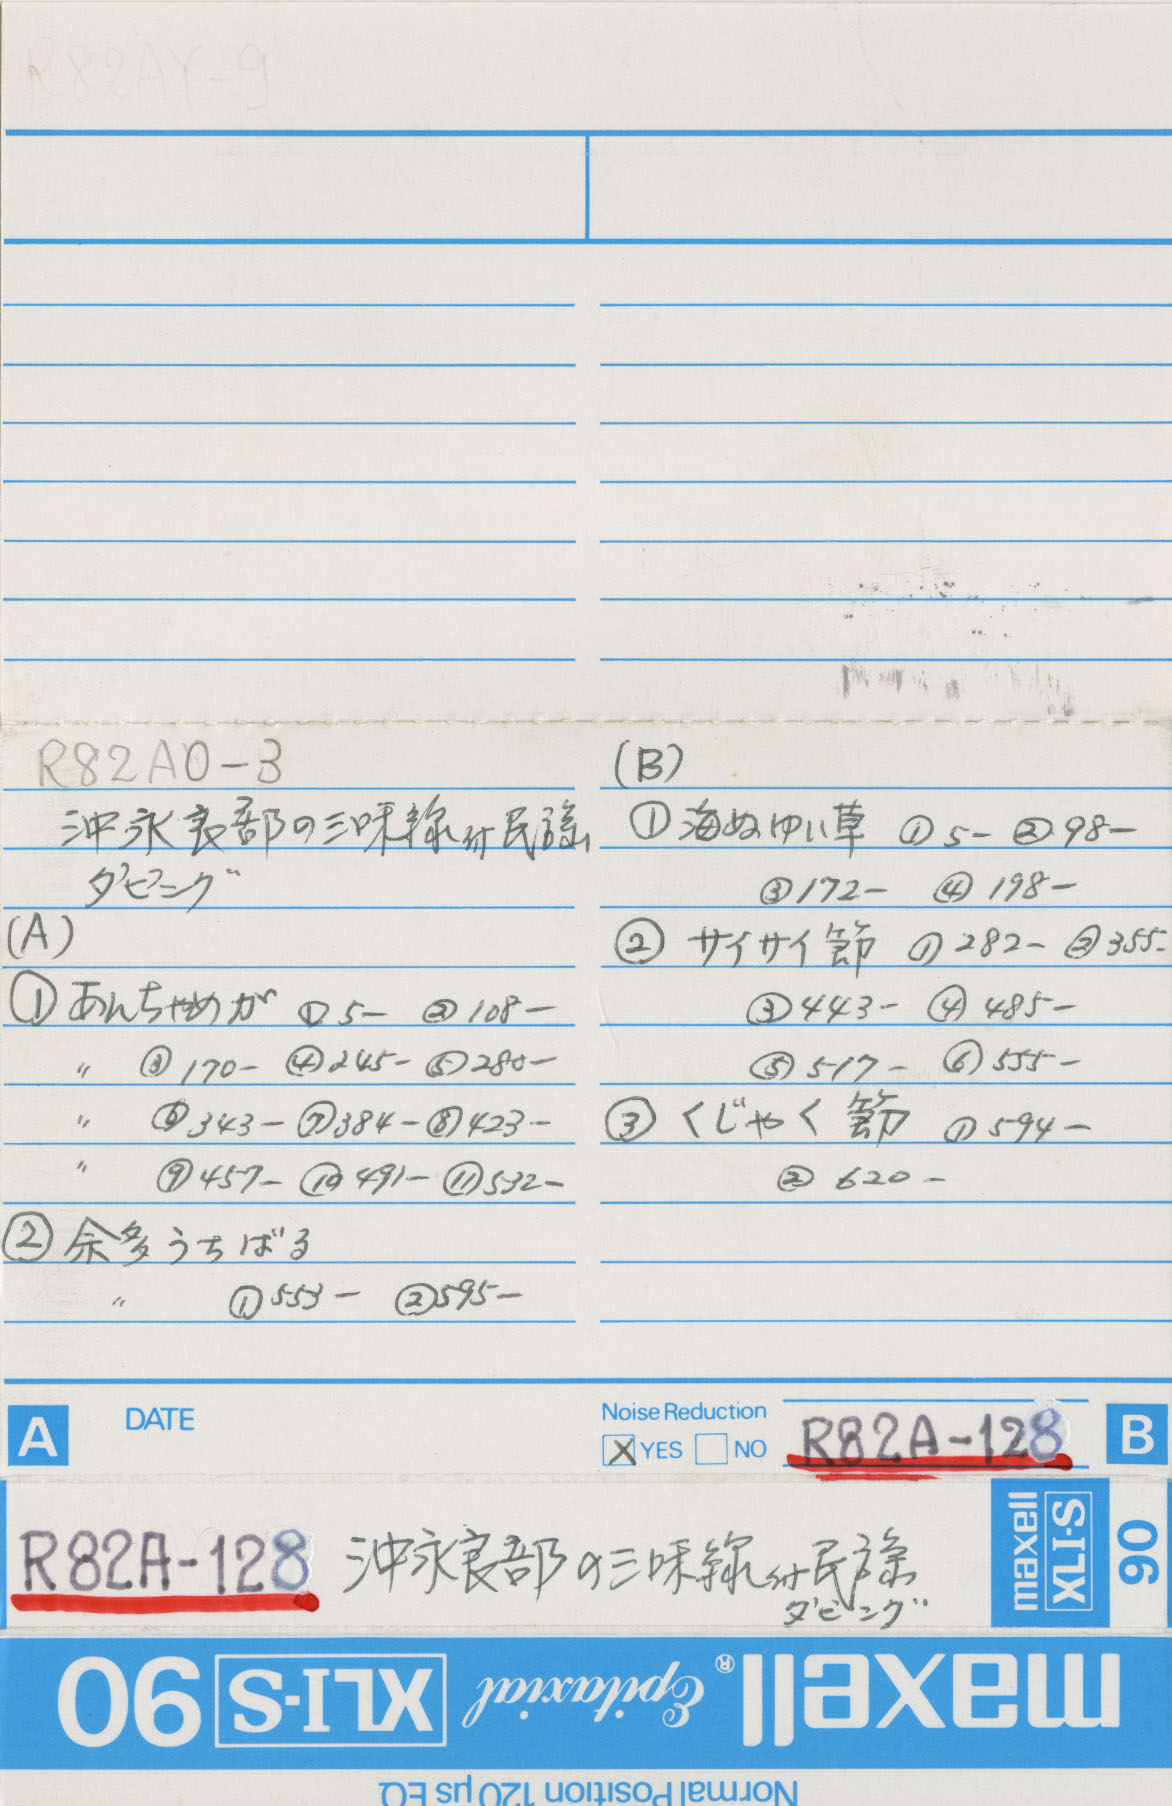 R82AY-9
R82AO-3
沖永良部の三味線付民謡
ダビング
(A)
① あんちゃめが ① 5- ② 108-
〃 ③ 170- ④ 245- ⑤ 280-
〃 ⑥ 343- ⑦ 384- ⑧ 423-
〃 ⑨ 457- ⑩ 491- ⑪ 532-
② 余多うちばる
〃 ① 553- ② 595-
(B)
① 海ぬゆい草 ① 5- ② 98-
③ 172- ④ 198-
② サイサイ節 ① 282- ② 355-
③ 443- ④ 485-
⑤ 517- ⑥ 555-
③ くじゃく節 ① 594-
② 620-
A DATE
Noise Reduction
YES NO
R82A-128
B
R82A-128 沖永良部の三味線付民謡
ダビング
maxell
XLI-S
90
maxell® Epitaxial XLI-S 90
Normal Position 120 μs EQ